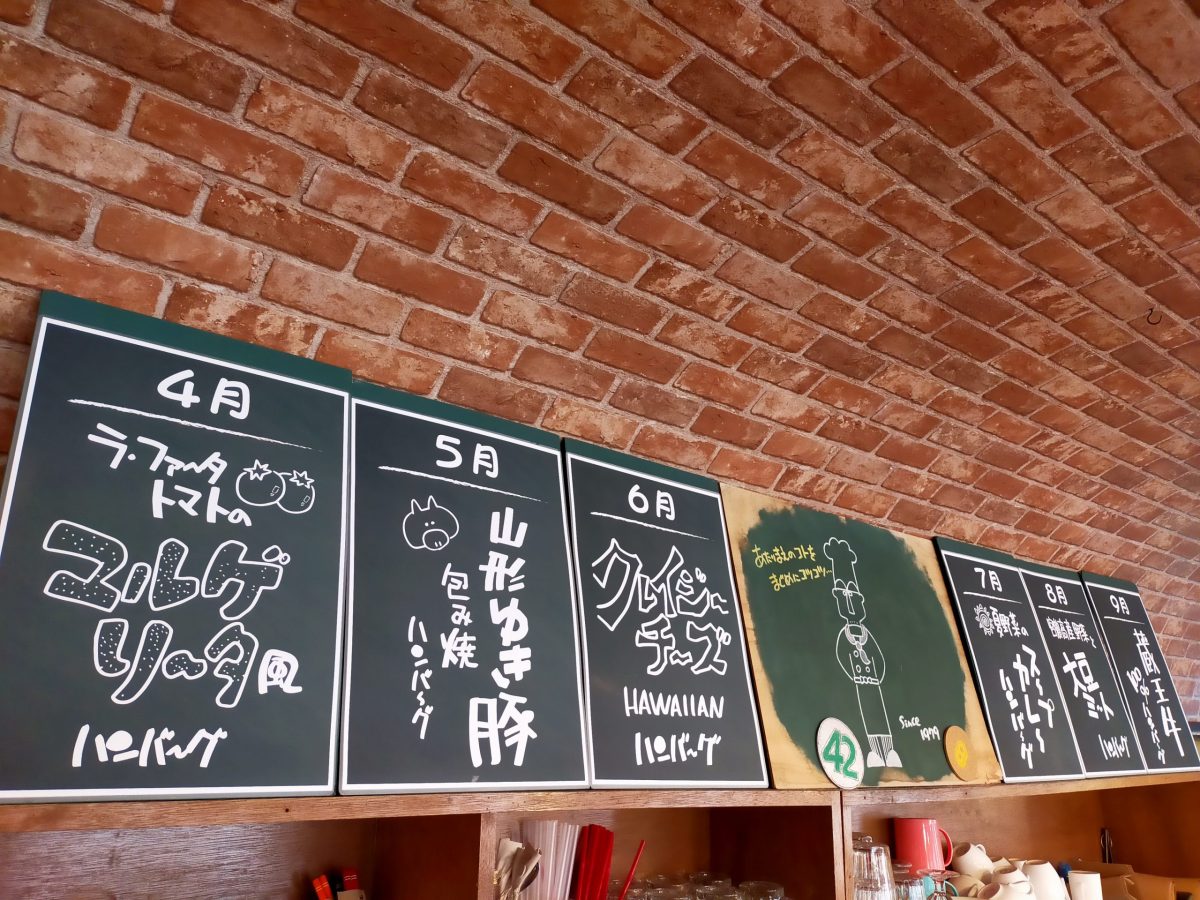 4月
ラ・ファータ
トマトの
コルゲ
リータ風
ハンバーグ
5月
山形ゆき豚
包み焼
ハンバーグ
6月
クレイジー
チーズ
HAWAIIAN
ハンバーグ
あたりまえのコトを
まじめにコツコツ…
Since
1979
42
7月
夏野菜の
ハンバーグ
8月
大豆ミート
ハンバーグ
9月
蔵王牛
100%ハンバーグ